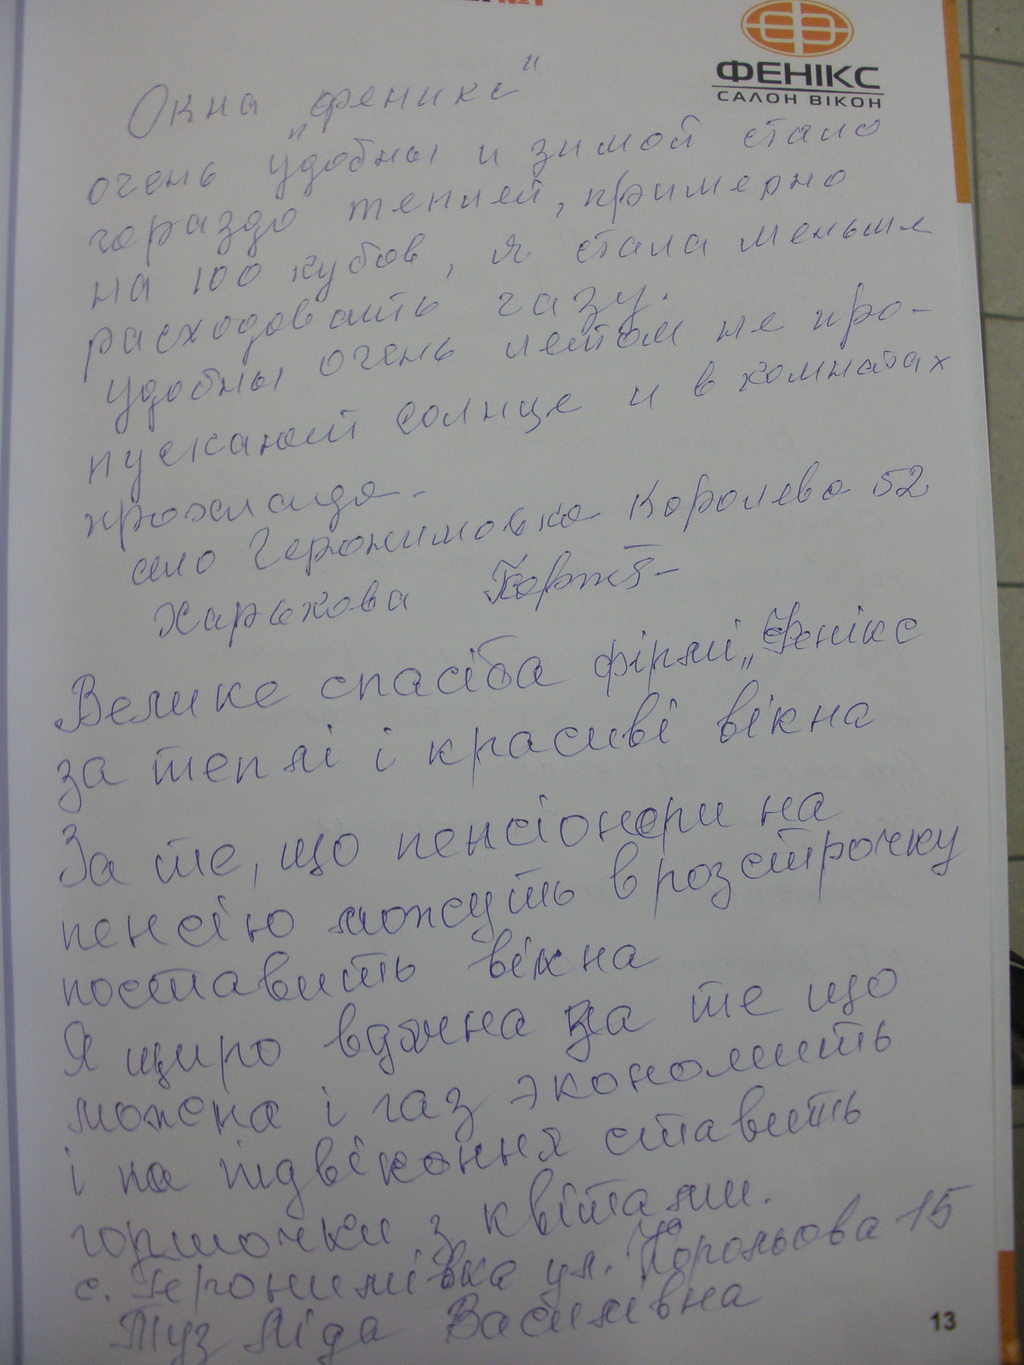 ФЕНІКС
САЛОН ВІКОН
Окна „феникс"
очень удобны и зимой стало
гораздо теплей, примерно
на 100 кубов, я стала меньше
расходовать газу.
удобны очень летом не про-
пускают солнце и в комнатах
прохлада.
село Геронимовка Королева 52
Харькова
Велике спасіба фірмі „Фенікс
за теплі і красиві вікна
За те, що пенсіонери на
пенсію можуть в розстрочку
поставить вікна
Я щиро вдячна за те що
можна і газ экономить
і на підвіконня ставить
горшочки з квітами.
с. Геронимівка ул. Корольова 15
Туз Ліда Василівна
13